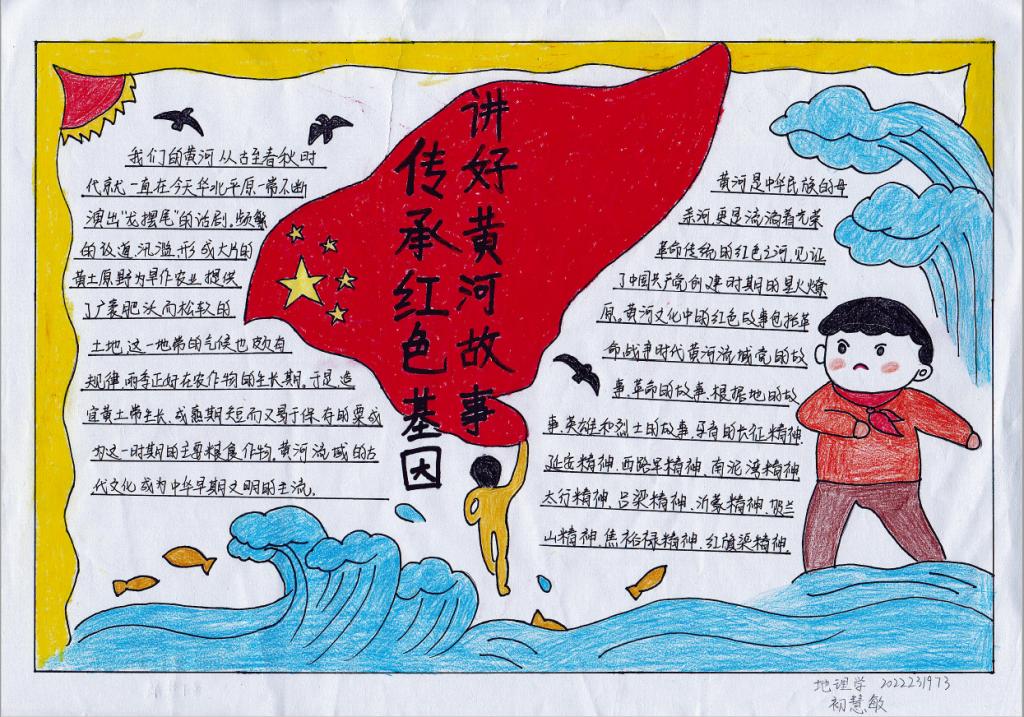 讲好黄河故事
传承红色基因
我们的黄河从古至春秋时
代就一直在今天华北平原一带不断
演出“龙摆尾”的话剧。频繁
的改道、汛滥、形成大片的
黄土原野为旱作农业提供
了广袤肥沃而松软的
土地,这一地带的气候也颇有
规律,雨季正好在农作物的生长期。于是适
宜黄土带生长、成熟期短而又易于保存的粟成
为这一时期的主要粮食作物。黄河流域的古
代文化成为中华早期文明的主流.
黄河是中华民族的母
亲河,更是流淌着光荣
革命传统的红色之河,见证
了中国共产党创建时期的星火燎
原。黄河文化中的红色故事包括革
命战争时代黄河流域党的故
事、革命的故事、根据地的故
事、英雄和烈士的故事,孕育的长征精神、
延安精神、西路军精神、南泥湾精神、
太行精神、吕梁精神、沂蒙精神、贺兰
山精神、焦裕禄精神、红旗渠精神.
地理学 2022231973
初慧敏